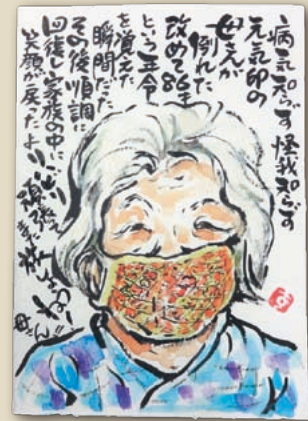 病気知らず怪我知らず
元気印の
母さんが
倒れた
改めて86才
という年令
を覚えた
瞬間だった
その後順調に
回復し家族の中に
笑顔が戻ったよ!!
頑張って
また旅しようね!
母さん!!